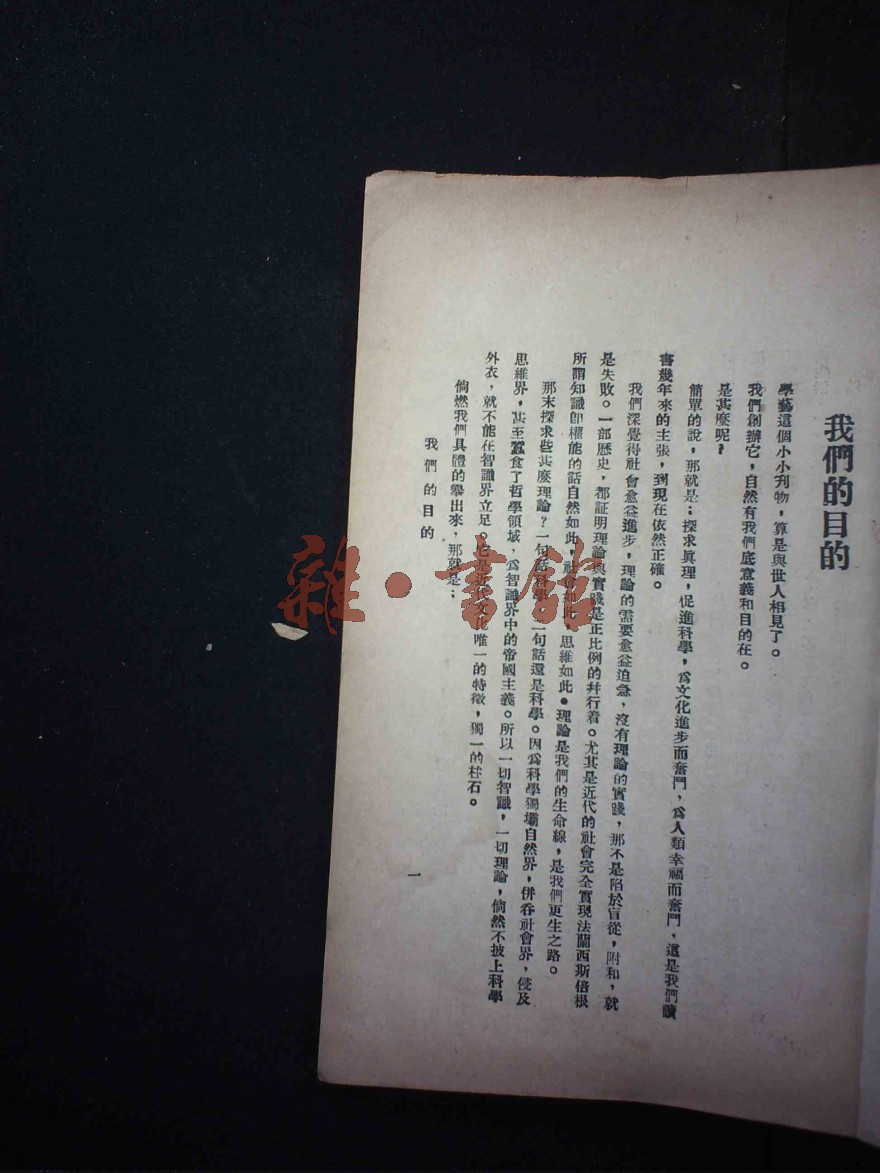 我們的目的
學藝這個小小刋物，算是與世人相見了。
我們創辦它，自然有我們底意義和目的在。
是甚麼呢？
簡單的說，那就是；探求眞理，促進科學，爲文化進步而奮鬥，爲人類幸福而奮鬥，這是我們讀
書幾年來的主張，到現在依然正確。
我們深覺得社會愈益進步，理論的需要愈益迫急，沒有理論的實踐，那不是陷於盲從，附和，就
是失敗。一部歷史，都証明理論與實踐是正比例的幷行着。尤其是近代的社會完全實現法蘭西斯倍根
所謂知識卽權能的話自然如此，社會如此，思維如此。理論是我們的生命線，是我們更生之路。
那末探求些甚麼理論？一句話科學，一句話還是科學。因爲科學獨壩自然界，併呑社會界，侵及
思維界，甚至蠶食了哲學領域，爲智識界中的帝國主義。所以一切智識，一切理論，倘然不披上科學
外衣，就不能在智識界立足。它是近代文化唯一的特徵，獨一的柱石。
倘燃我們具體的舉出來，那就是；
我們的目的
一
雜·書館